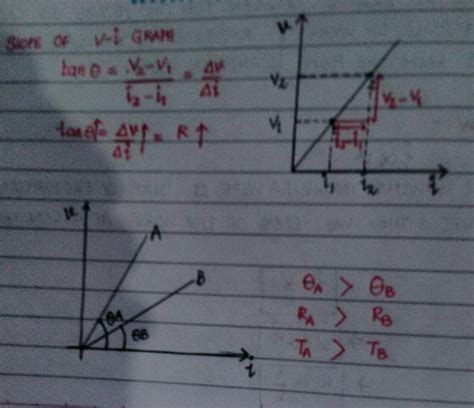 SLOPE OF V-i GRAPH
tanθ = V₂-V₁ / i₂-i₁ = ΔV / Δi
tanθ↑ = ΔV↑ / Δi = R↑
V
V₂
V₁
2
V₂-V₁
i₂-i₁
i₁ i₂ i
V
A
B
θA
θB
i
θA > θB
RA > RB
TA > TB